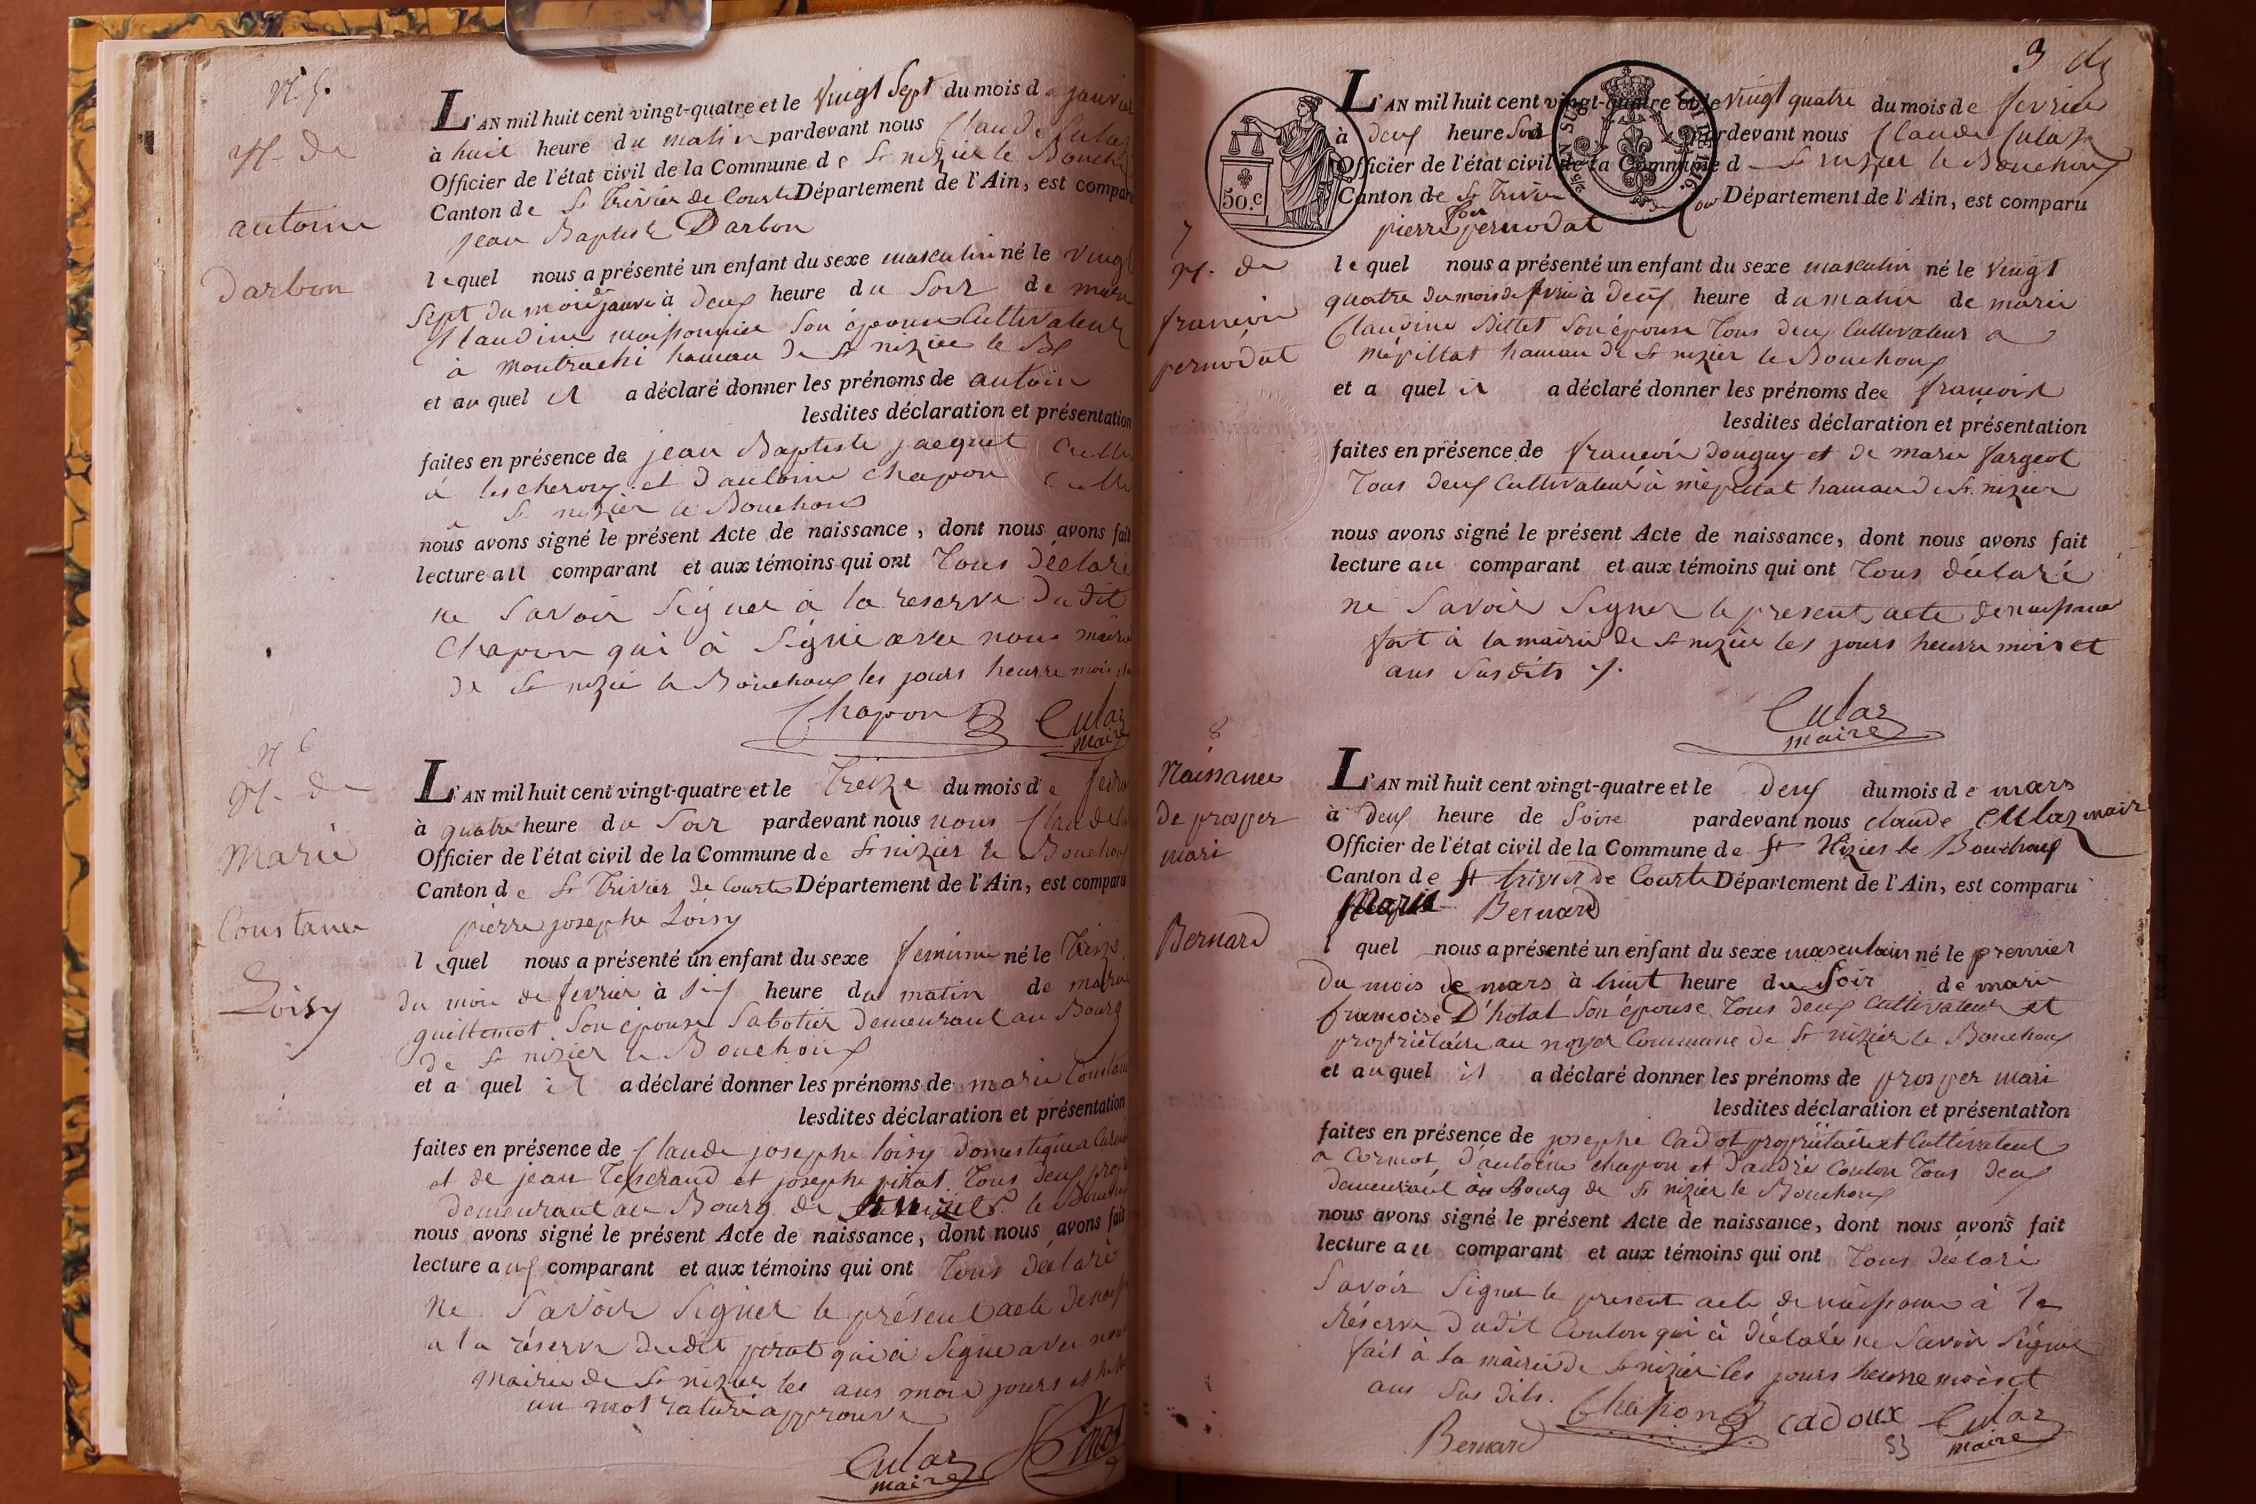 N. 5.
N. de
antoine
Darbon
L'AN mil huit cent vingt-quatre et le vingt Sept du mois de janvier
à huit heure du matin pardevant nous Claude Culaz
Officier de l'état civil de la Commune de St nizier le Bouchoux
Canton de St Trivier de Courtes Département de l'Ain, est comparu
jean Baptiste Darbon
lequel nous a présenté un enfant du sexe masculin né le vingt
Sept du mois de janvier à deux heure du Soir de marie
Claudine moissonnier Son épouse Cultivateur
à hameau de St nizier le Bx
et au quel il a déclaré donner les prénoms de antoine
lesdites déclaration et présentation
faites en présence de jean Baptiste jacquet Cult
à lescheroux et d'antoine chapon Cult
St nizier le Bouchoux
nous avons signé le présent Acte de naissance, dont nous avons fait
lecture au comparant et aux témoins qui ont Tous déclaré
ne Savoir Signer à la reserve du dit
Chapon qui à Signé avec nous mairie
de St nizier le Bouchoux les jours heurre mois
Chapon Culaz
maire
N 6
N. de
Marie
Constance
Loisy
L'AN mil huit cent vingt-quatre et le Treize du mois de fevrier
à quatre heure du Soir pardevant nous nous Claude
Officier de l'état civil de la Commune de St nizier le Bouchoux
Canton de St Trivier de Courtes Département de l'Ain, est comparu
pierre josephe Loisy
lequel nous a présenté un enfant du sexe feminine né le Treize
du mois de fevrier à heure du matin de marie
guillemot Son épouse Sabotier demeurant au Bourg
de St nizier le Bouchoux
et a quel il a déclaré donner les prénoms de marie Constance
lesdites déclaration et présentation
faites en présence de Claude josephe loisy domestique a
et de jean Tisserand et josephe pirat Tous deux
demeurant au Bourg de St nizier le Bouchoux
nous avons signé le présent Acte de naissance, dont nous avons fait
lecture aux comparant et aux témoins qui ont Tous déclaré
ne Savoir Signer le présent acte de
a la réserve dudit pirat qui à Signé avec nous
Mairie de St nizier les ans mois jours et
un mot raturé approuvé
Culaz
maire
3
50.c
LOI DE 1816.
L'AN mil huit cent vingt-quatre et le vingt quatre du mois de fevrier
à deux heure Soir pardevant nous Claude Culaz
Officier de l'état civil de la Commune d St nizier le Bouchoux
Canton de St Trivier Cour Département de l'Ain, est comparu
pierre pernodat
7
N. de
françois
pernodat
lequel nous a présenté un enfant du sexe masculin né le vingt
quatre du mois de fevrier à deux heure du matin de marie
Claudine Billet Son épouse Tous deux Cultivateur a
mépillat hameau de St nizier le Bouchoux
et a quel il a déclaré donner les prénoms dee françois
lesdites déclaration et présentation
faites en présence de françois donguy et de marie fargeot
Tous deux Cultivateur à mépillat hameau de St nizier
nous avons signé le présent Acte de naissance, dont nous avons fait
lecture au comparant et aux témoins qui ont Tous déclaré
ne Savoir Signer le présent acte de naissance
fait à la mairie de St nizier les jours heurre mois et
ans Susdits
Culaz
maire
8
Naissance
de prosper
mari
Bernard
L'AN mil huit cent vingt-quatre et le deux du mois de mars
à deux heure de Soire pardevant nous Claude Culaz mair
Officier de l'état civil de la Commune de St Nizier le Bouchoux
Canton de St trivier de Courte Département de l'Ain, est comparu
Marie Bernard
l quel nous a présenté un enfant du sexe masculain né le premier
du mois de mars à huit heure du Soir de marie
francoise D'hotal Son épouse Tous deux Cultivateur et
propriétaire au noyer Commune de St nizier le Bouchoux
et au quel il a déclaré donner les prénoms de prosper mari
lesdites déclaration et présentation
faites en présence de josephe Cadot propriétaire et Cultivateur
a Cormoz, d'antoine chapon et d'andré Coulon Tous deux
demeurant au Bourg de St nizier le Bouchoux
nous avons signé le présent Acte de naissance, dont nous avons fait
lecture au comparant et aux témoins qui ont Tous déclaré
Savoir Signer le présent acte de naissance à la
réserve dudit Coulon qui à déclaré ne Savoir Signer
fait à la mairie de St nizier les jours heurre mois et
ans Sus dits. Chapon cadoux Culaz
Bernard 53 maire